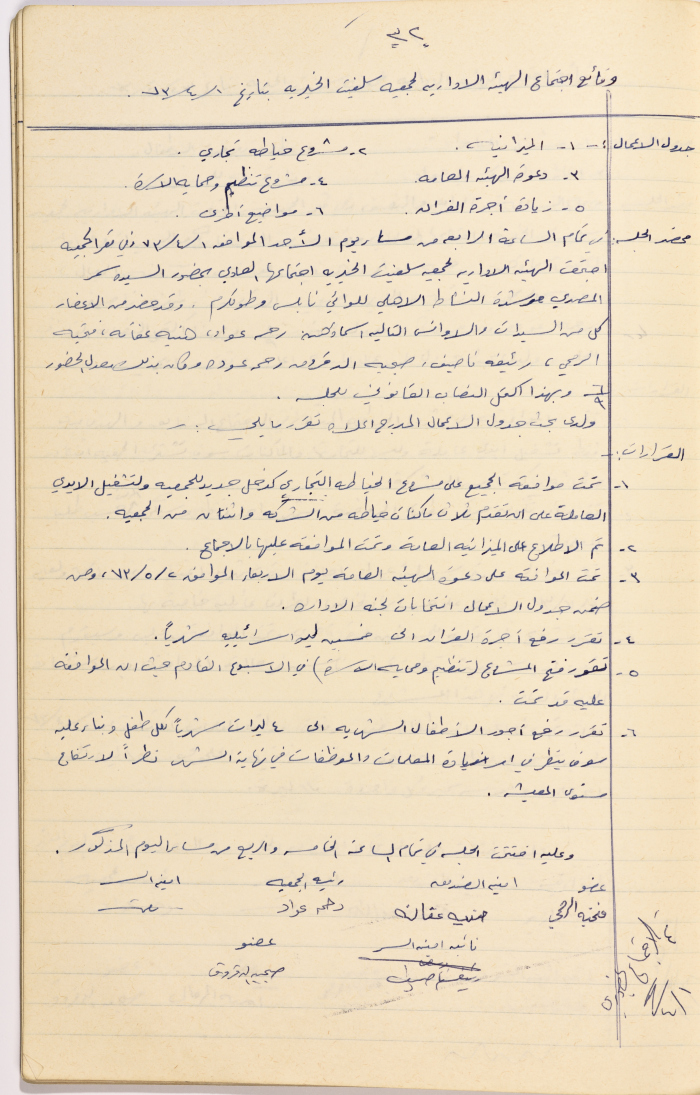 -٣٢-
وقائع اجتماع الهيئه الاداريه لجمعيه سلفيت الخيريه بتاريخ ٧٣/٤/١ .
جدول الاعمال :- ١- الميزانيه . ٢- مشروع خياطه تجاري .
٣- دعوة الهيئه العامه . ٤- مشروع تنظيم وحمايه الاسرة .
٥- زيادة أجرة الفران . ٦- مواضيع أخرى .
محضر الجلسه : في تمام الساعة الرابعه من مساء يوم الأحد الموافق ٧٣/٤/١ وفي مقر الجمعيه
اجتمعت الهيئه الاداريه لجمعيه سلفيت الخيريه اجتماعها العادي بحضور السيده سمر
المصدي مرشدة النشاط الاهلي للوائي نابلس وطولكرم . وقد حضر من الاعضاء
كل من السيدات والاوانس التاليه اسماؤهن : رحمه عواد ، هنيه عفانه ، فتحيه
الرمحي ، رئيفه ناصيف ، صبحيه الدقروق رحمه عوده وكان بذلك معدل الحضور
٦/٩ وبهذا اكتمل النصاب القانوني للجلسه .
ولدى بحث جدول الاعمال المدرج اعلاه تقرر ما يلي :-
القرارات :-
١- تمت موافقة الجميع على مشروع الخياطه التجاري كدخل جديد للجمعيه ولتشغيل الايدي
العاملة على ان تقدم ثلاث ماكنات خياطه من الشركه واثنتان من الجمعيه .
٢- تم الاطلاع على الميزانيه العامة وتمت الموافقة عليها بالاجماع .
٣- تمت الموافقة على دعوة الهيئه العامة يوم الاربعاء الموافق ٧٣/٥/٢ ، ومن
ضمن جدول الاعمال انتخابات لجنه الاداره .
٤- تقرر رفع أجرة الفران الى خمسين ليره اسرائيليه شهرياً .
٥- تقرر فتح المشروع (تنظيم وحمايه الاسرة) في الاسبوع القادم حيث ان الموافقة
عليه قد تمت .
٦- تقرر رفع أجور الأطفال الشهريه الى ٤ ليرات شهرياً لكل طفل وبناء عليه
سوف ينظر في امر زيادة المعلمات والموظفات في نهاية الشهر نظراً لارتفاع
مستوى المعيشه .
وعليه اختتمت الجلسه في تمام الساعة الخامسه والربع من مساء اليوم المذكور .
عضو امينه الصندوق رئيسه الجمعيه امينه السر
فتحيه الرمحي هنيه عفانه رحمه عواد
نائبه امينه السر عضو
رئيفه ناصيف صبحيه الدقروق